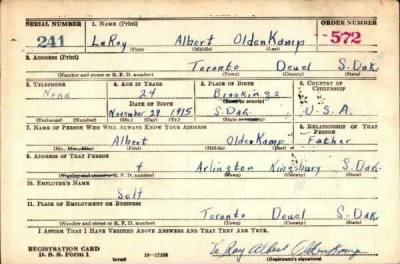 SERIAL NUMBER 1. NAME (Print) ORDER NUMBER
241 LeRoy Albert OldenKamp 572
(First) (Middle) (Last)
2. ADDRESS (Print)
Toronto Deuel S. Dak.
(Number and street or R. F. D. number) (Town) (County) (State)
3. TELEPHONE 4. AGE IN YEARS 5. PLACE OF BIRTH 6. COUNTRY OF CITIZENSHIP
None 24 Brookings
DATE OF BIRTH (Town or county)
November 29 1915 S. Dak. U. S. A.
(Exchange) (Number) (Mo.) (Day) (Yr.) (State or country)
7. NAME OF PERSON WHO WILL ALWAYS KNOW YOUR ADDRESS 8. RELATIONSHIP OF THAT PERSON
Albert OldenKamp Father
(Mr., Mrs., Miss) (First) (Middle) (Last)
9. ADDRESS OF THAT PERSON
Arlington Kingsbury S. Dak.
(Number and street or R. F. D. number) (Town) (County) (State)
10. EMPLOYER'S NAME
Self
11. PLACE OF EMPLOYMENT OR BUSINESS
Toronto Deuel S. Dak
(Number and street or R. F. D. number) (Town) (County) (State)
I AFFIRM THAT I HAVE VERIFIED ABOVE ANSWERS AND THAT THEY ARE TRUE.
REGISTRATION CARD
D. S. S. Form 1 (over) 16—17105 Le Roy Albert OldenKamp
(Registrant's signature)